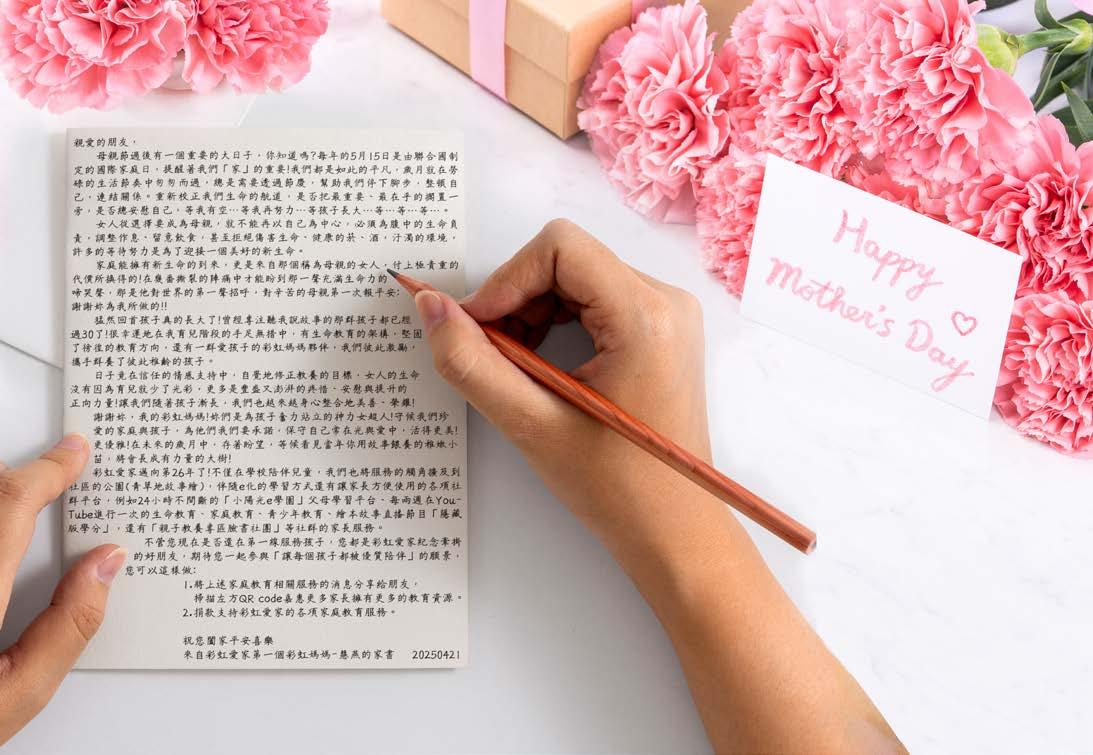 親愛的朋友，
母親節過後有一個重要的大日子，你知道嗎?每年的5月15日是由聯合國制
定的國際家庭日，提醒著我們「家」的重要!我們都是如此的平凡，歲月就在勞
碌的生活節奏中匆匆而過，總是需要透過節慶，幫助我們停下腳步，整頓自
己，連結關係。重新校正我們生命的航道，是否把最重要、最在乎的擱置一
旁，是否總安慰自己，等我有空…等我再努力…等孩子長大…等…等…等…。
女人從選擇要成為母親，就不能再以自己為中心，必須為腹中的生命負
責，調整作息、留意飲食，甚至拒絕傷害生命、健康的菸、酒，汙濁的環境，
許多的等待努力是為了迎接一個美好的新生命。
家庭能擁有新生命的到來，更是來自那個稱為母親的女人，付上極貴重的
代價所換得的!在幾番撕裂的陣痛中才能盼到那一聲充滿生命力的
啼哭聲，那是他對世界的第一聲招呼，對辛苦的母親第一次報平安:
謝謝妳為我所做的!!
猛然回首孩子真的長大了!曾經專注聽我說故事的那群孩子都已經
過30了!很幸運地在我育兒階段的手足無措中，有生命教育的架構，鞏固
了棒棒的教育方向，還有一群愛孩子的彩虹媽媽夥伴，我們彼此激勵，
攜手群養了彼此稚齡的孩子。
日子竟在信任的情感支持中，自覺地修正教養的目標，女人的生命
沒有因為育兒就少了光彩，更多是豐盛又澎湃的疼惜、安慰與提升的
正向力量!我們隨著孩子漸長，我們也越來越身心整合地美善、榮耀!
謝謝妳，我的彩虹媽媽!妳們是為孩子奮力站立的神力女超人!守候我們珍
愛的家庭與孩子，為他們我們要承諾，保守自己常在光與愛中，活得更美!
更優雅!在未來的歲月中，存著盼望，等候看見當年你用故事餵養的稚嫩小
苗，將會長成有力量的大樹!
彩虹愛家邁向第26年了!不僅在學校陪伴兒童，我們也將服務的觸角擴及到
社區的公園(青草地故事繪)，伴隨e化的學習方式還有讓家長方便使用的各項社
群平台，例如24小時不間斷的「小陽光e學園」父母學習平台、每兩週在You-
Tube進行一次的生命教育、家庭教育、青少年教育、繪本故事直播節目「隱藏
版學分」，還有「親子教養專區臉書社團」等社群的家長服務。
不管您現在是否還在第一線服務孩子，您都是彩虹愛家紀念牽掛
的好朋友，期待您一起參與「讓每個孩子都被優質陪伴」的願景，
您可以這樣做:
1.將上述家庭教育相關服務的消息分享給朋友，
掃描左方QR code嘉惠更多家長擁有更多的教育資源。
2.捐款支持彩虹愛家的各項家庭教育服務。
祝您闔家平安喜樂
來自彩虹愛家第一個彩虹媽媽-慧燕的家書 20250421
Happy
Mother's Day